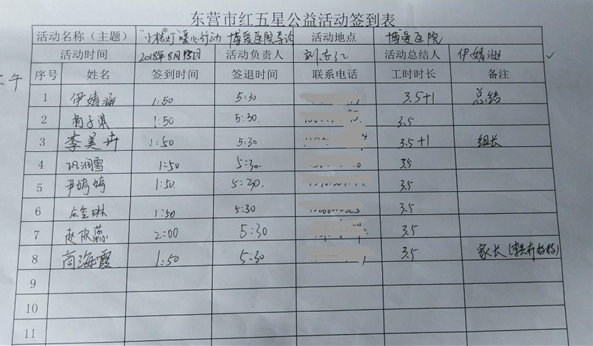 东营市红五星公益活动签到表
活动名称（主题） "小桔灯"暖心行动 博爱医院导诊 活动地点 博爱医院
活动时间 2018年8月15日 活动负责人 活动总结人 伊婧涵
序号 姓名 签到时间 签退时间 联系电话 工时时长 备注
1 伊婧涵 1:50 5:30 3.5+1 总结
2 1:50 5:30. 3.5
3 李美卉 1:50 5:30 3.5+1 组长
4 巩润雪 1:50 5:30. 3.5
5 尹婷婷 1:50 5:30. 3.5
6 1:50 5:30 3.5
7 2:00 5:30 3.5
8 尚海霞 1:50 5:30 3.5 家长(李美卉妈妈)
9
10
11